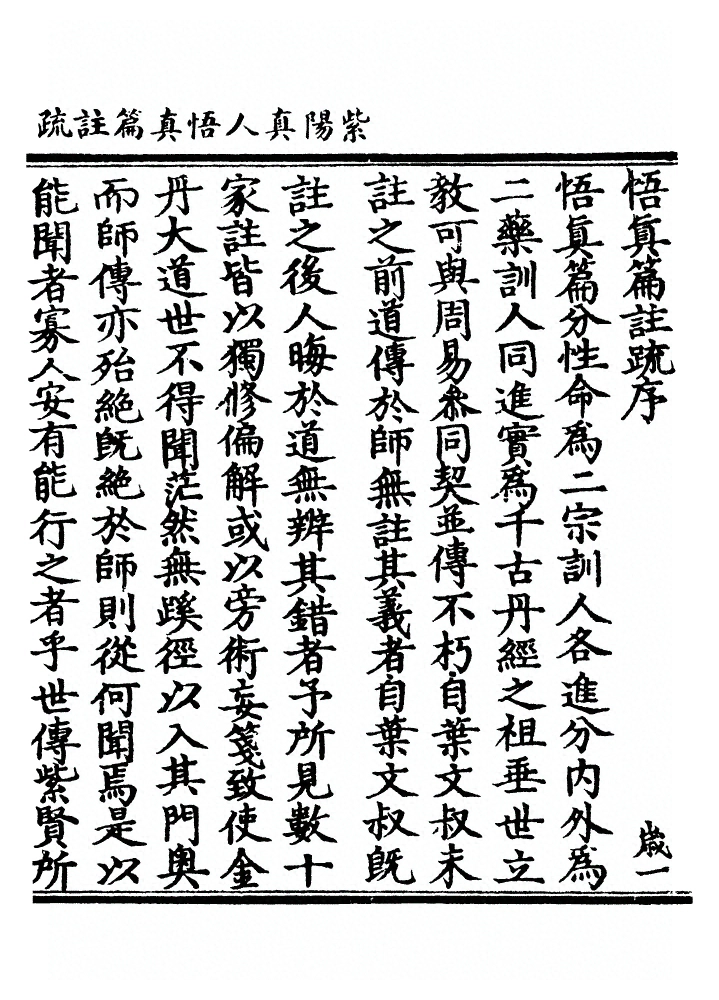 紫陽真人悟真篇註疏
悟眞篇註疏序
歲一
悟眞篇分性命爲二宗訓人各進分内外爲
二藥訓人同進實爲千古丹經之祖垂世立
教可與周易叅同契並傳不朽自葉文叔未
註之前道傳於師無註其義者自葉文叔旣
註之後人晦於道無辨其錯者予所見數十
家註皆以獨修偏解或以旁術妄箋致使金
丹大道世不得聞茫然無蹊徑以入其門奥
而師傳亦殆絶旣絶於師則從何聞焉是以
能聞者寡人安有能行之者乎世傳紫賢所